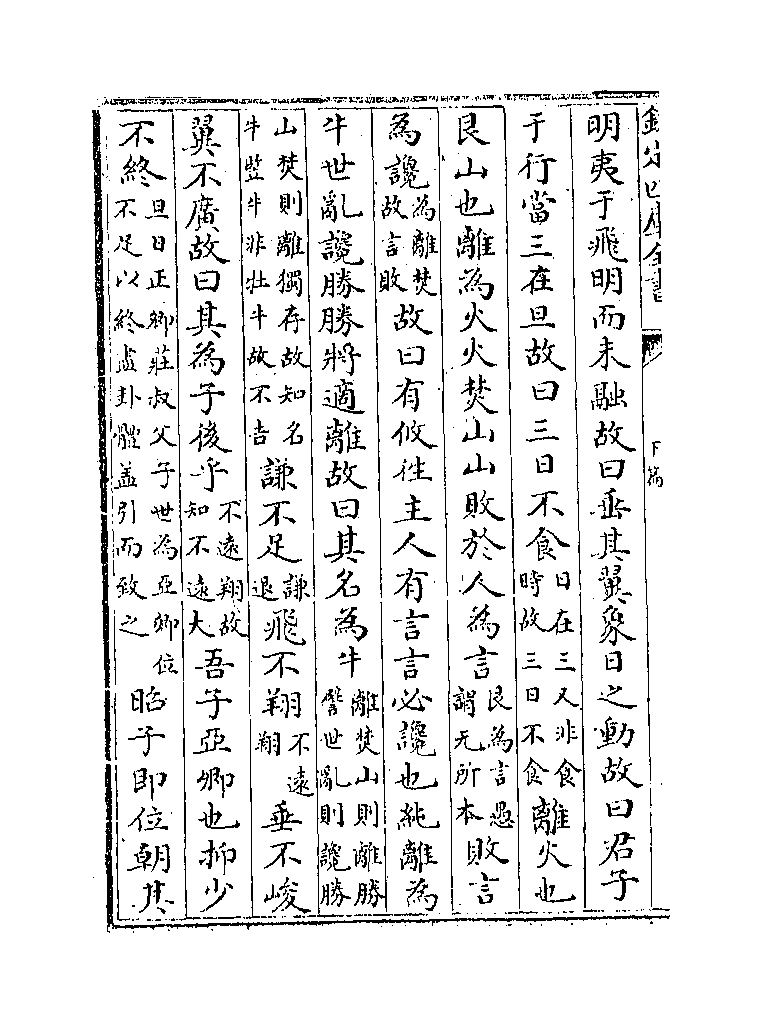 欽定四庫全書
下篇
明夷于飛明而未融故曰垂其翼象日之動故曰君子
于行當三在旦故曰三日不食日在三又非食時故三日不食離火也
艮山也離為火火焚山山敗於人為言艮為言愚謂无所本敗言
為讒為離焚故言敗故曰有攸往主人有言言必讒也純離為
牛世亂讒勝勝將適離故曰其名為牛離焚山則離勝譬世亂則讒勝
山焚則離獨存故知名牛豎牛非牡牛故不吉謙不足謙退飛不翔不遠翔垂不峻
翼不廣故曰其為子後乎不遠翔故知不遠大吾子亞卿也抑少
不終旦日正卿莊叔父子世為亞卿位不足以終盡卦體盖引而致之昭子即位朝其